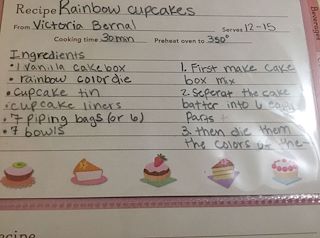 Recipe Rainbow cupcakes
From Victoria Bernal Serves 12-15
Cooking time 30min Preheat oven to 350°
Ingredients
• 1 vanilla cake box
• rainbow color die
• cupcake tin
• cupcake liners
• 7 piping bags (or 6)
• 7 bowls
1. First make cake
box mix
2. Seperat the cake
batter into 6
parts
3. then die them
the colors of the
Beverages